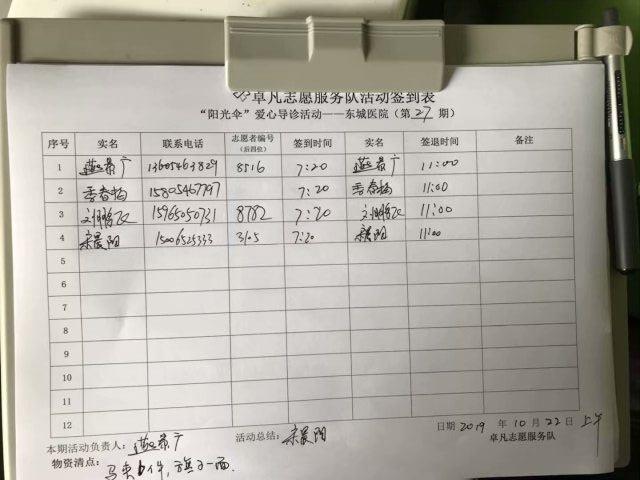 卓凡志愿服务队活动签到表
“阳光伞”爱心导诊活动——东城医院（第27期）
序号 实名 联系电话 志愿者编号（后四位） 签到时间 实名 签退时间 备注
1 13605463829 8516 7:20 11:00
2 15805467797 7:20 11:00
3 15965050731 8782 7:20 11:00
4 宋晨阳 15006525333 3105 7:20 宋晨阳 11:00
5
6
7
8
9
10
11
12
日期 2019 年 10 月 22 日 上午
本期活动负责人： 活动总结：宋晨阳 卓凡志愿服务队
物资清点：马夹6件，旗子一面.